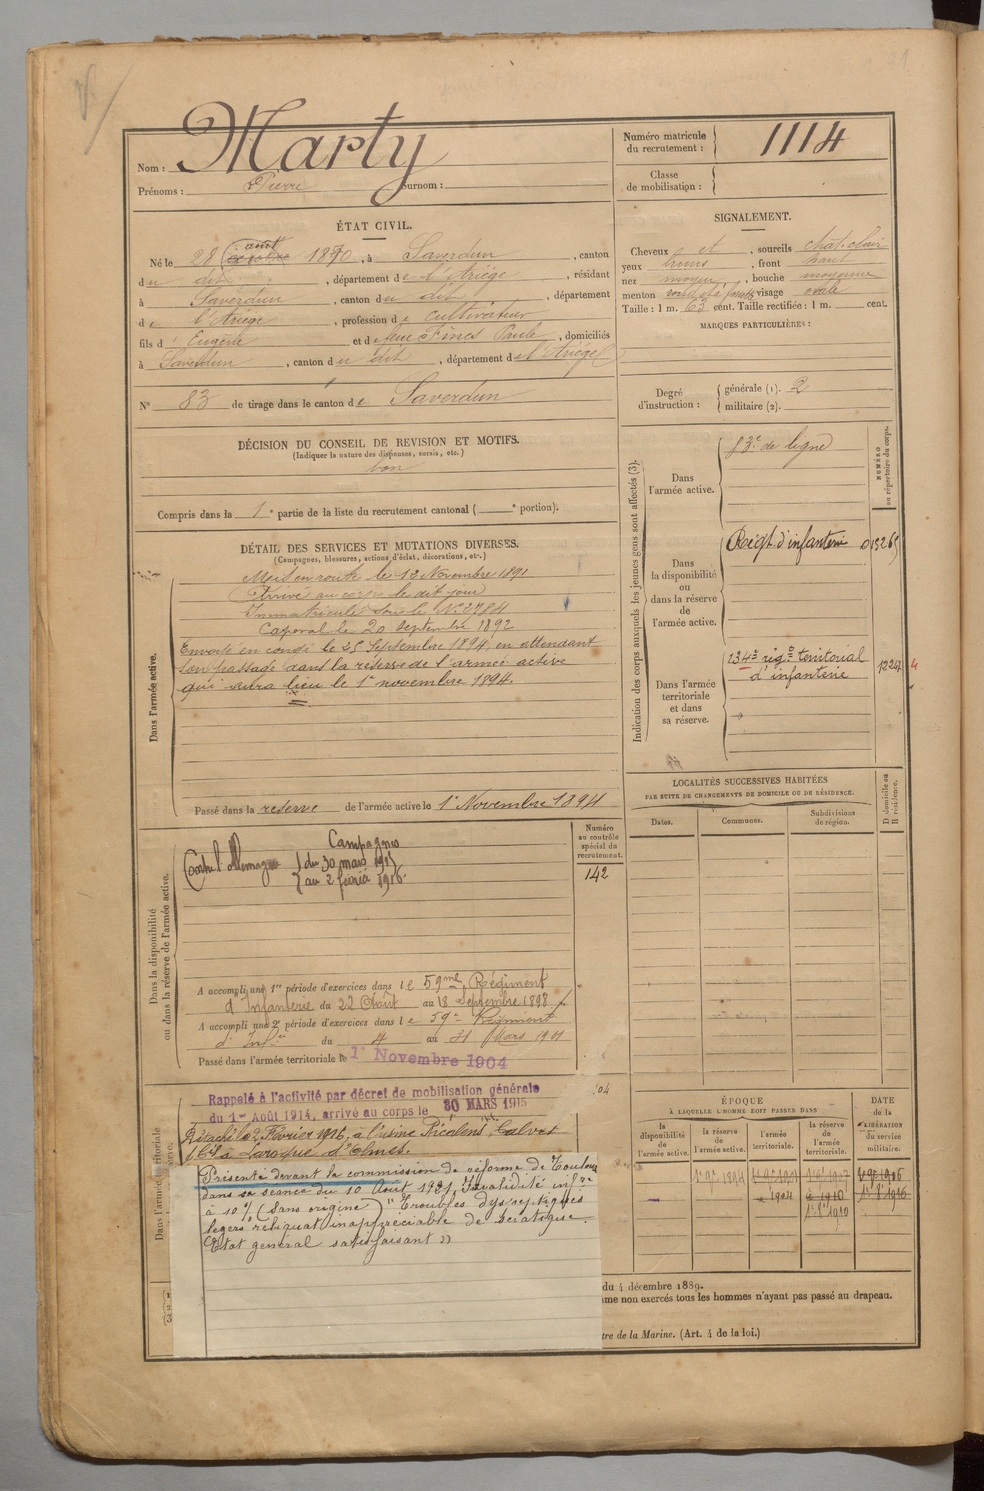 Marty
Nom :
Prénoms : Pierre Surnom :
Numéro matricule
du recrutement : 1114
Classe
de mobilisation :
ÉTAT CIVIL.
août
Né le 28 octobre 1870, à Saverdun, canton
du dit, département de l'Ariège, résidant
à Saverdun, canton du dit, département
de l'Ariège, profession de cultivateur
fils d'Eugène et de feue Fincs Paule, domiciliés
à Saverdun, canton du dit, département de l'Ariège
N° 83 de tirage dans le canton de Saverdun
SIGNALEMENT.
Cheveux et, sourcils chat. clair
yeux bruns, front haut
nez moyen, bouche moyenne
menton rond visage ovale
Taille : 1 m. 63 cent. Taille rectifiée : 1 m. cent.
MARQUES PARTICULIÈRES :
Degré
d'instruction :
générale (1). 2
militaire (2).
DÉCISION DU CONSEIL DE REVISION ET MOTIFS.
(Indiquer la nature des dispenses, sursis, etc.)
bon
Compris dans la 1e partie de la liste du recrutement cantonal ( e portion).
DÉTAIL DES SERVICES ET MUTATIONS DIVERSES.
(Campagnes, blessures, actions d'éclat, décorations, etc.)
Dans l'armée active.
Mis en route le 13 Novembre 1891
Arrivé au corps le dit jour
Immatriculé sous le N° 2784
Caporal le 20 septembre 1892
Envoyé en congé le 25 Septembre 1894, en attendant
son passage dans la réserve de l'armée active
qui aura lieu le 1er novembre 1894.
Passé dans la réserve de l'armée active le 1er Novembre 1894
Indication des corps auxquels les jeunes gens sont affectés (3).
NUMÉRO
au répertoire du corps.
Dans
l'armée active.
83e de ligne
Dans
la disponibilité
ou
dans la réserve
de
l'armée active.
Régt. d'infanterie 01526
Dans l'armée
territoriale
et dans
sa réserve.
134e rég.t territorial
d'infanterie
1224
LOCALITÉS SUCCESSIVES HABITÉES
PAR SUITE DE CHANGEMENTS DE DOMICILE OU DE RÉSIDENCE.
Dates. Communes. Subdivisions
de région.
D domicile ou
R résidence.
Dans la disponibilité
ou dans la réserve de l'armée active.
Numéro
au contrôle
spécial du
recrutement.
142
Campagnes
Contre l'Allemagne du 30 mars 1915
au 2 février 1916.
A accompli une 1re période d'exercices dans le 59me Régiment
d'Infanterie du 22 Août au 18 Septembre 1898
A accompli une 2e période d'exercices dans le 59e Régiment
d'Infrie du 4 au 31 Mars 1901
Passé dans l'armée territoriale le 1er Novembre 1904
04
Rappelé à l'activité par décret de mobilisation générale
du 1er Août 1914, arrivé au corps le 30 MARS 1915
Détaché le 2 Février 1916, à l'usine Ricalens Calvet
à Laroque d'Olmes.
Présenté devant la commission de réforme de Toulouse
dans sa séance du 10 Août 1921, Invalidité infre
à 10% (Sans origine) "Troubles dyspeptiques
légers reliquat inappréciable de sciatique.
Etat général satisfaisant"
ÉPOQUE
À LAQUELLE L'HOMME DOIT PASSER DANS
DATE
de la
LIBÉRATION
du service
militaire.
la
disponibilité
de
l'armée active.
la réserve
de
l'armée active.
l'armée
territoriale.
la réserve
de
l'armée
territoriale.
1er 9e 1894
1904
1910
1916
du 4 décembre 1889.
mme non exercés tous les hommes n'ayant pas passé au drapeau.
tre de la Marine. (Art. 4 de la loi.)